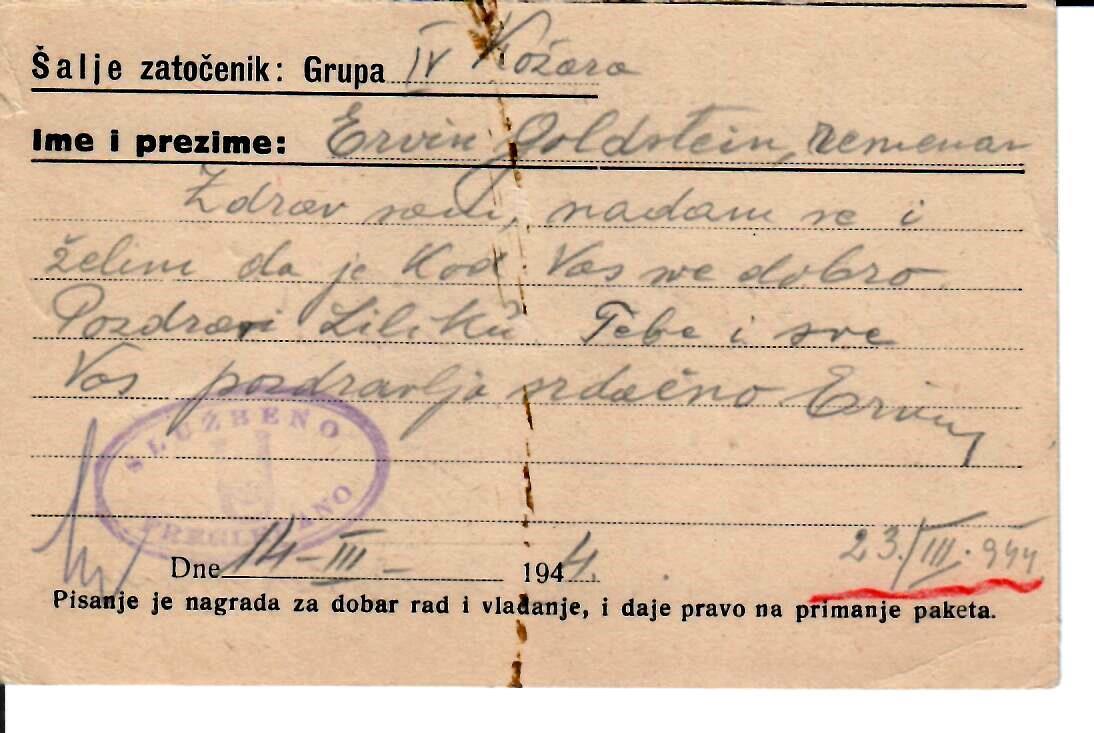 Šalje zatočenik: Grupa IV Kožara
Ime i prezime: Ervin Goldstein, remenar
Zdrav sam, nadam se i
želim da je kod Vas sve dobro.
Pozdravi Liliku. Tebe i sve
Vas pozdravlja srdačno Ervin
SLUŽBENO
PREGLEDANO
Dne 14-III- 1944.
23./III.944
Pisanje je nagrada za dobar rad i vladanje, i daje pravo na primanje paketa.